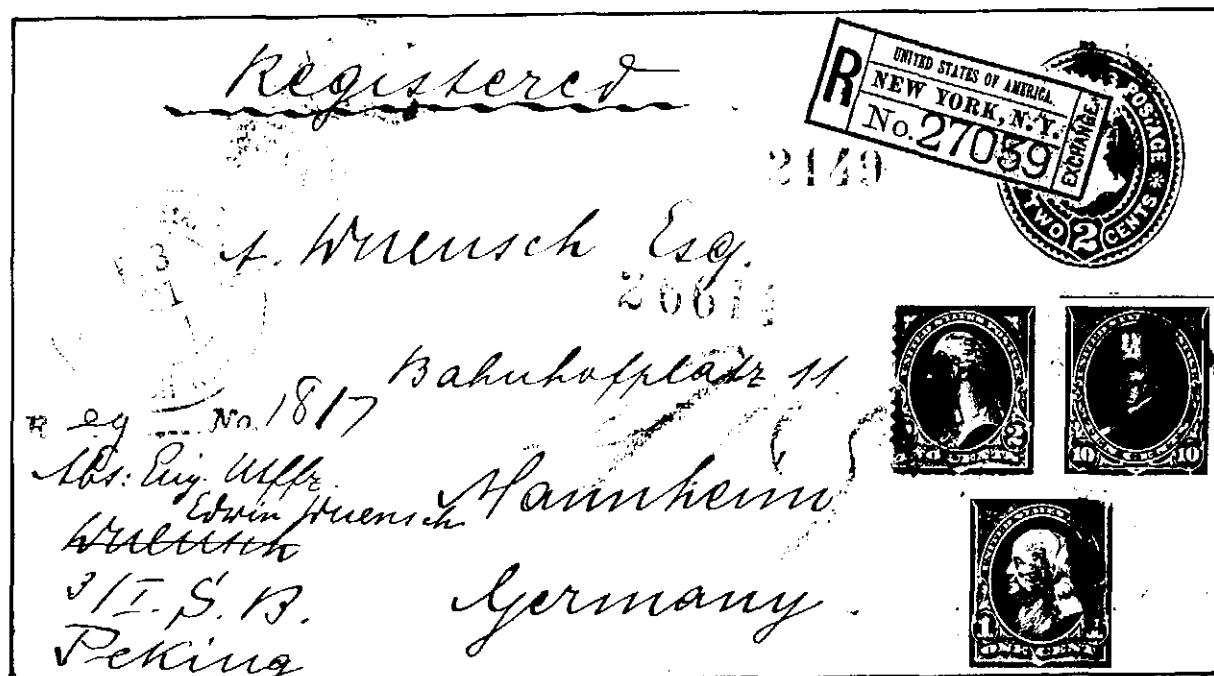 Registered
R
UNITED STATES OF AMERICA.
NEW YORK, N.Y.
No. 27039
EXCHANGE.
POSTAGE
TWO 2 CENTS
2149
A. Wuensch Esq.
Bahnhofplatz 11
Mannheim
Germany.
Reg No. 1817
Abs: Uffz.
Edwin Wuensch
Wuensch
3/I. S. B.
Peking
2 2
10 10
1 1
ONE CENT